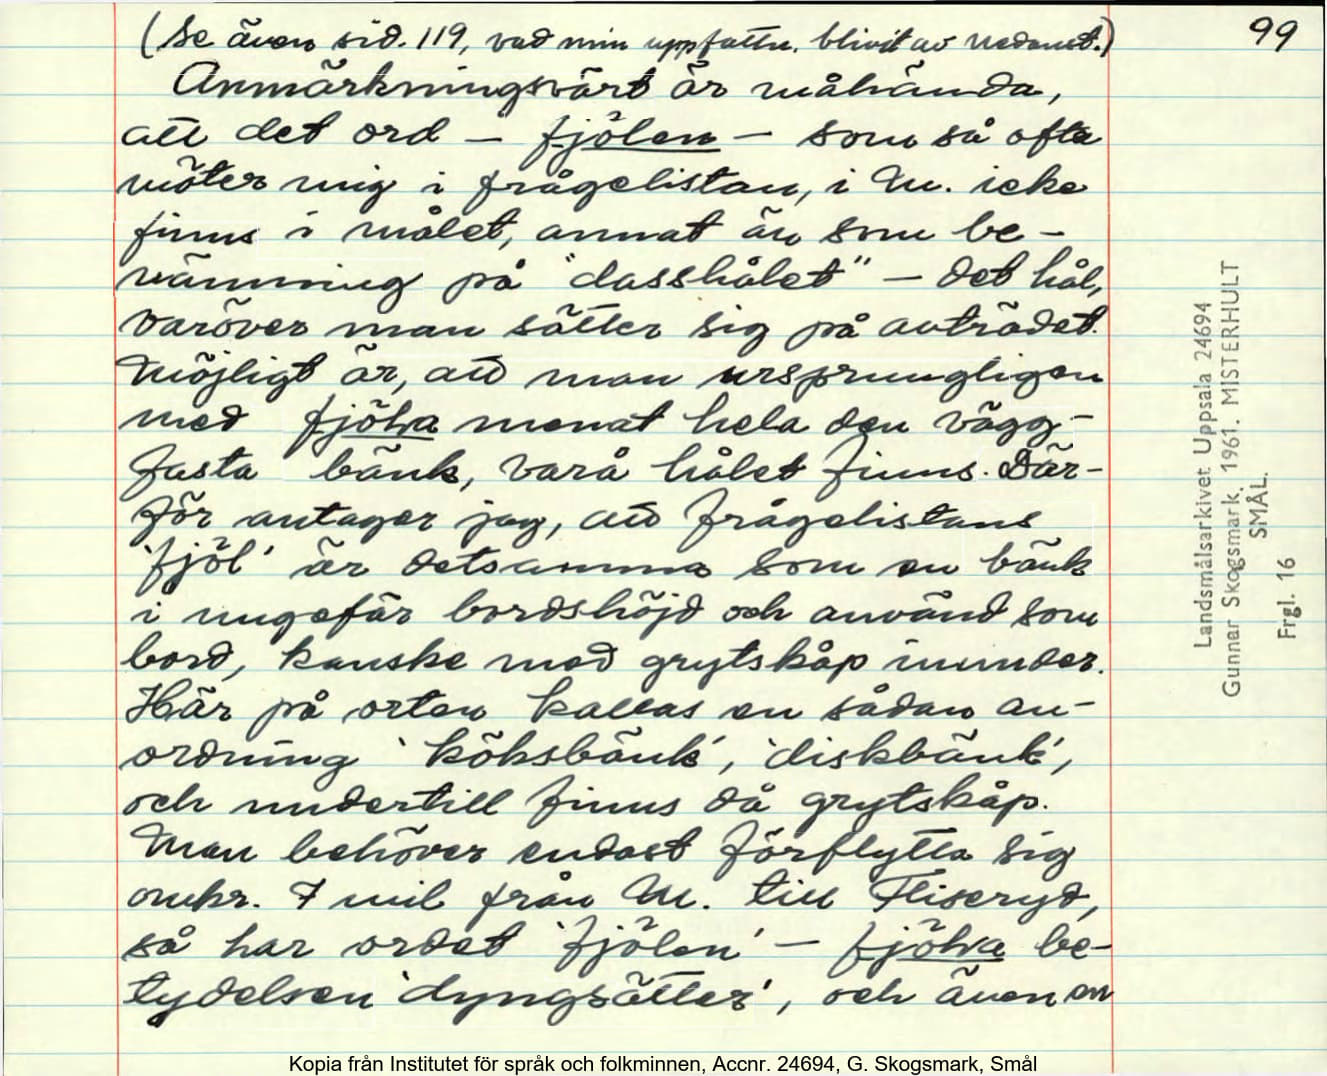 (Se även sid. 119, vad min uppfattn. blivit av nedanst.)
99
Anmärkningsvärt är måhända,
att det ord – fjölen – som så ofta
möter mig i frågelistan, i M. icke
finns i målet, annat än som be-
nämning på "dasshålet" – det hål,
varöver man sätter sig på avträdet.
Möjligt är, att man ursprungligen
med fjöla menat hela den vägg-
fasta bänk, varå hålet finns. Där-
för antager jag, att frågelistans
'fjöl' är detsamma som en bänk
i ungefär bordshöjd och använd som
bord, kanske med grytskåp inunder.
Här på orten kallas en sådan an-
ordning 'köksbänk', 'diskbänk',
och undertill finns då grytskåp.
Man behöver endast förflytta sig
omkr. 7 mil från M. till Fliseryd,
så har ordet 'fjölen' – fjöla be-
tydelsen 'dyngsätter', och även en
Landsmålsarkivet Uppsala 24694
Gunnar Skogsmark. 1961. MISTERHULT
SMÅL.
Frgl. 16
Kopia från Institutet för språk och folkminnen, Accnr. 24694, G. Skogsmark, Smål